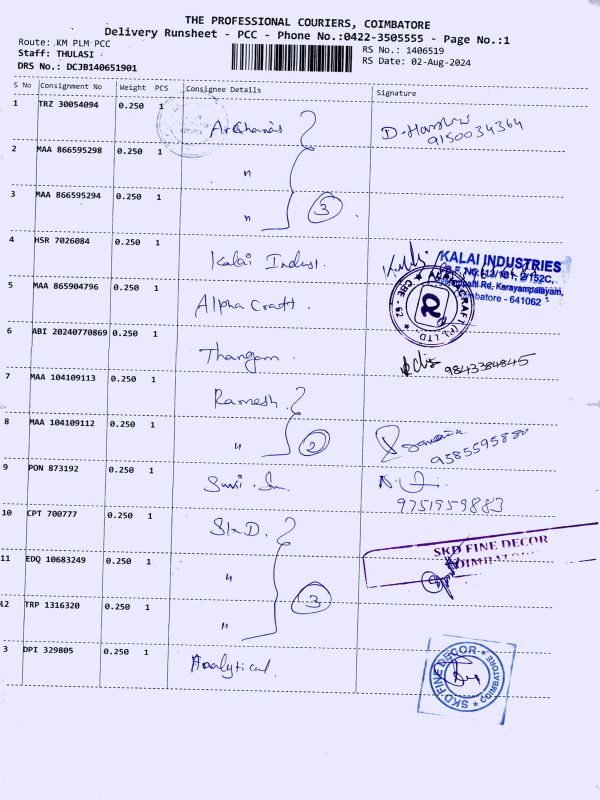 THE PROFESSIONAL COURIERS, COIMBATORE
Delivery Runsheet - PCC - Phone No.:0422-3505555 - Page No.:1
Route: KM PLM PCC
RS No.: 1406519
Staff: THULASI
RS Date: 02-Aug-2024
DRS No.: DCJB140651901
S No Consignment No Weight PCS Consignee Details Signature
1 TRZ 30054094 0.250 1
9150034364
2 MAA 866595298 0.250 1 "
3 MAA 866595294 0.250 1 "
3
4 HSR 7026084 0.250 1 Kalai Indust.
KALAI INDUSTRIES
Kerayampalayam,
Coimbatore - 641062
5 MAA 865904796 0.250 1 Alpha Craft
R
6 ABI 20240770869 0.250 1 Thangam
9843384845
7 MAA 104109113 0.250 1 Ramesh
8 MAA 104109112 0.250 1 "
2
9585595880
9 PON 873192 0.250 1
9751959883
10 CPT 700777 0.250 1 SKD.
SKD FINE DECOR
COIMBATORE
11 EDQ 10683249 0.250 1 "
3
12 TRP 1316320 0.250 1 "
3 DPI 329805 0.250 1 Analytical
SKD FINE DECOR
COIMBATORE